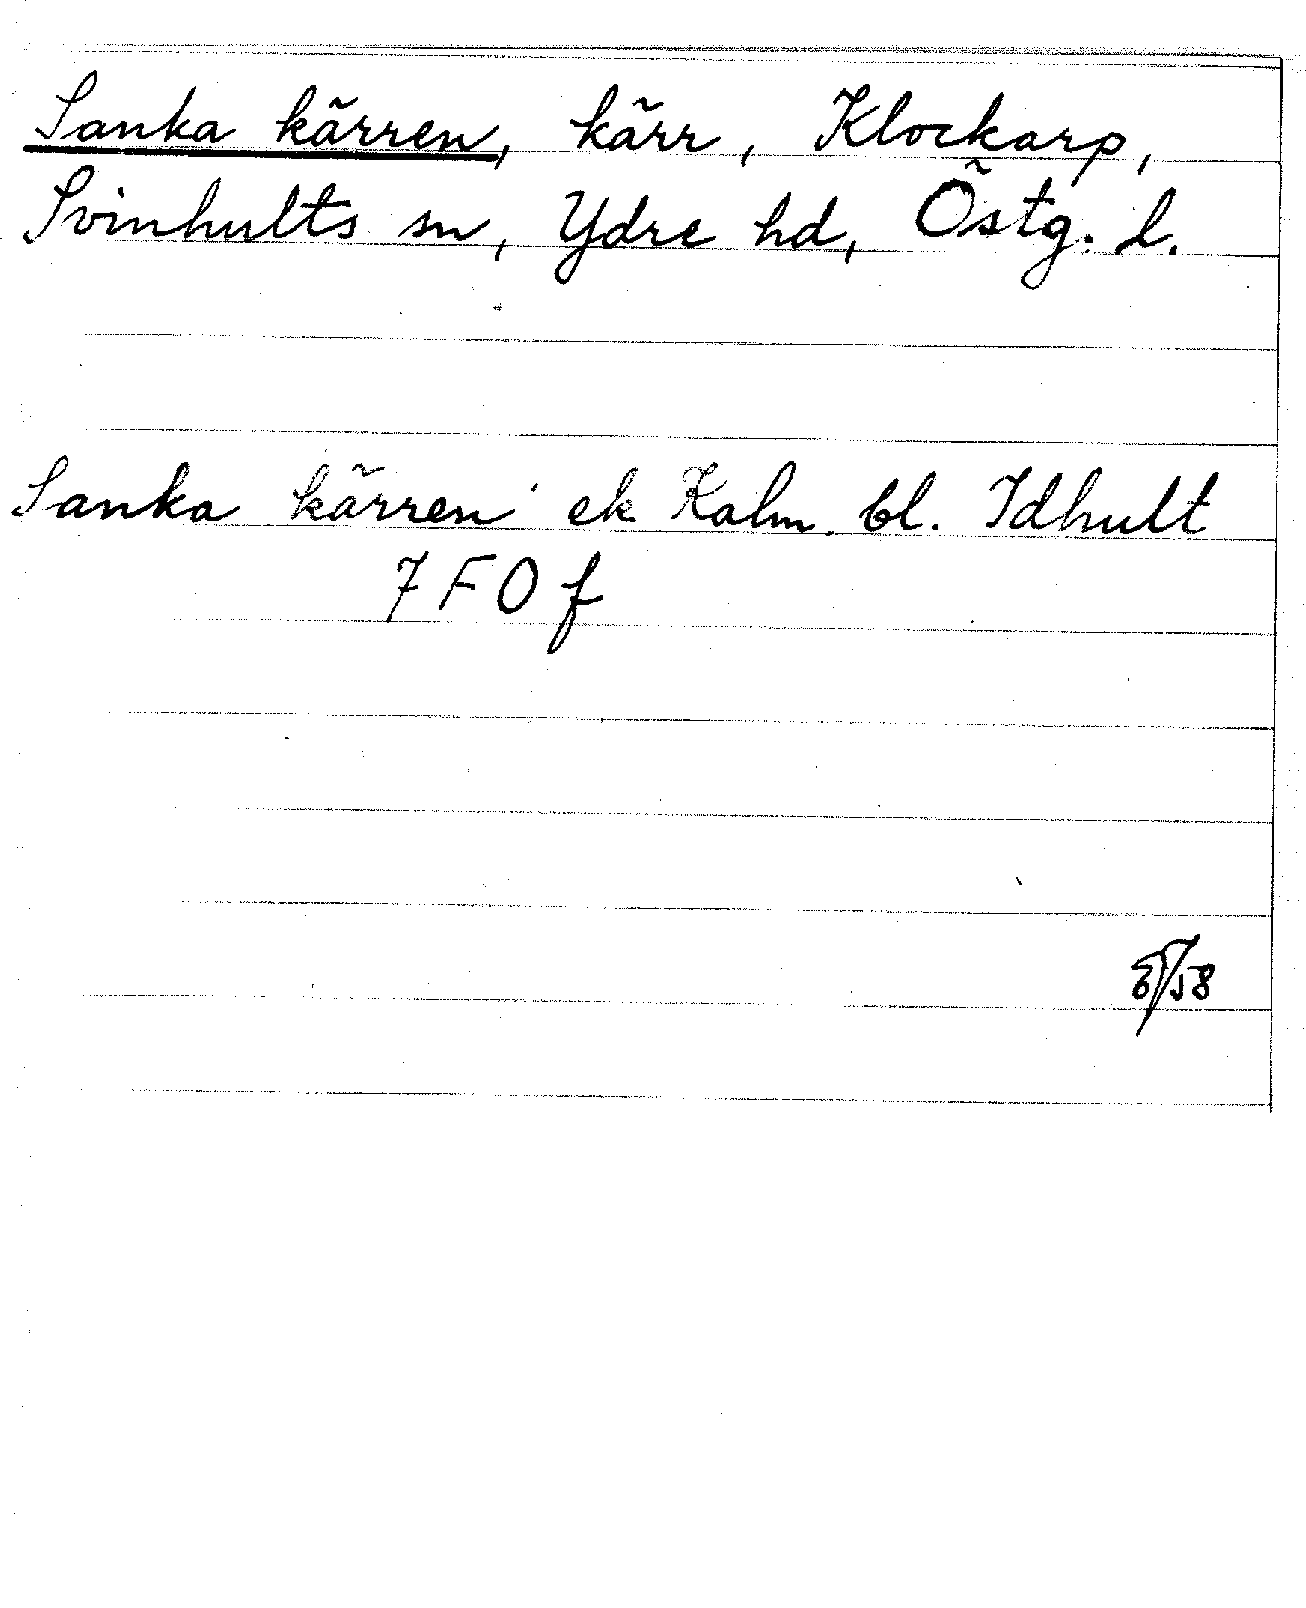 Sanka kärren, kärr, Klockarp,
Svinhults sn, Ydre hd, Östg. l.
Sanka kärren ek Kalm. bl. Idhult
7 F O f